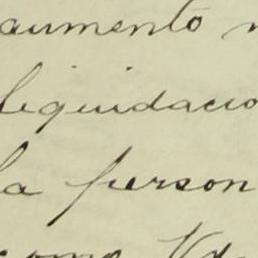 aumento
liquidacio
la person
como Vd